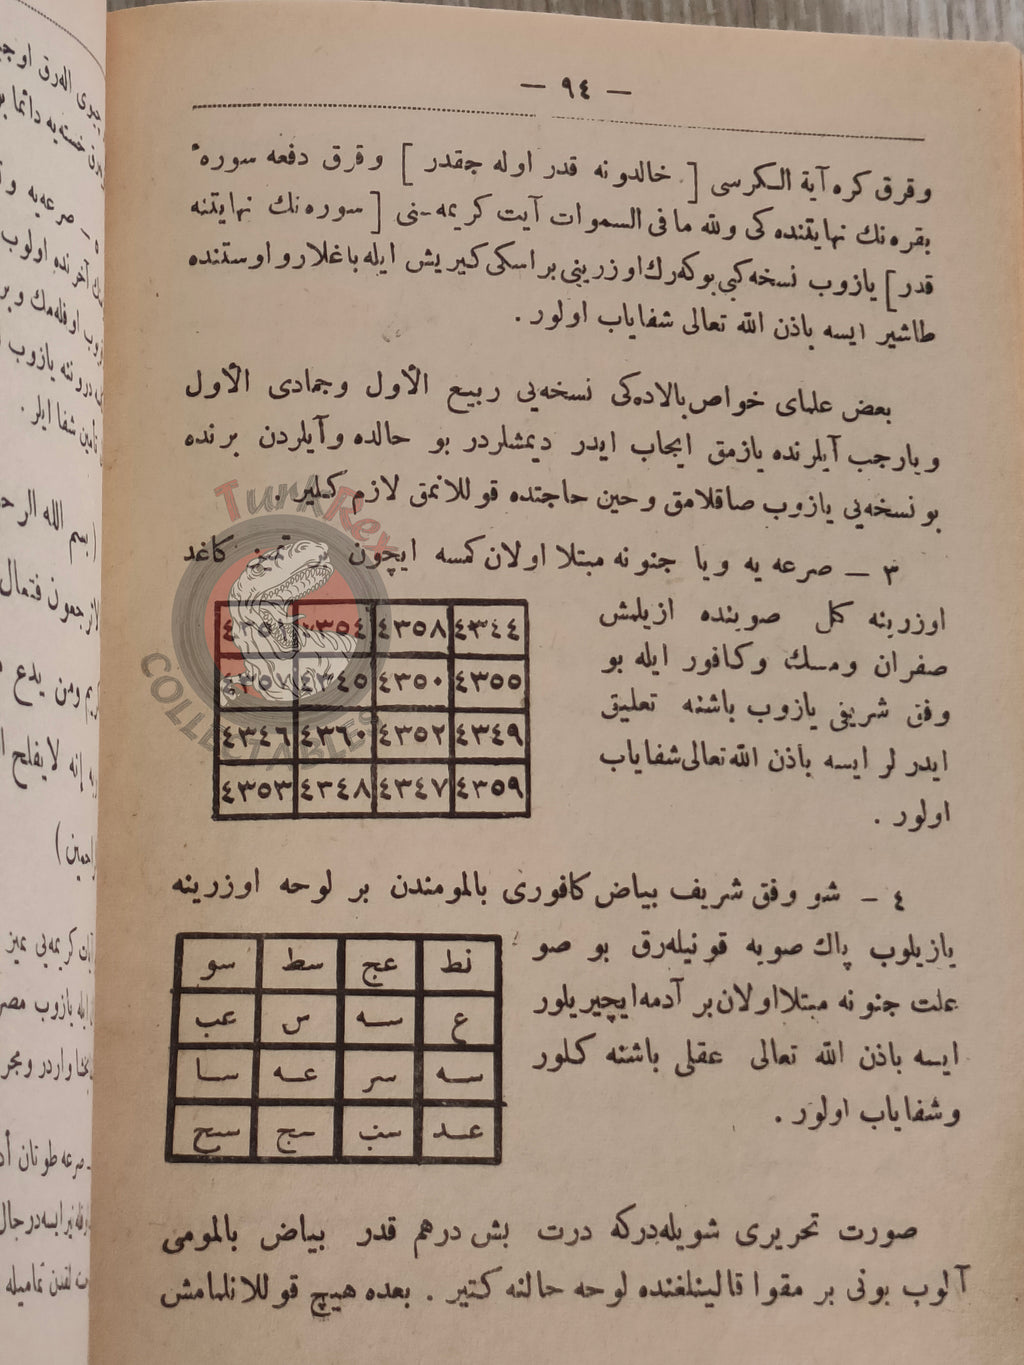 — ٩٤ —
وقرق كره آية الكرسى [ خالدونه قدر اوله جقدر ] وقرق دفعه سورهٔ
بقره نك نهايتنده كى ولله مافى السموات آيت كريمه-نى [ سوره نك نهايتنه
قدر ] يازوب نسخه كبى بوكه رك اوزرينى براسكى كيريش ايله باغلارو اوستنده
طاشير ايسه باذن الله تعالى شفاياب اولور .
بعض علماى خواص بالاده كى نسخه يى ربيع الأول وجمادى الأول
ويارجب آيلرنده يازمق ايجاب ايدر ديمشلردر بو حالده وآيلردن برنده
بونسخه يى يازوب صاقلامق وحين حاجتده قوللانمق لازم كلير .
٣ — صرعه يه ويا جنونه مبتلا اولان كمسه ايچون بر تميز كاغد
اوزرينه كل صوينده ازيلمش
صفران ومسك وكافور ايله بو
وفق شريفى يازوب باشنه تعليق
ايدر لر ايسه باذن الله تعالى شفاياب
اولور .
٤٣٥٤ ٤٣٥٨ ٤٣٤٤
٤٣٤٥ ٤٣٥٠ ٤٣٥٥
٤٣٤٦ ٤٣٦٠ ٤٣٥٢ ٤٣٤٩
٤٣٥٣ ٤٣٤٨ ٤٣٤٧ ٤٣٥٩
TurkRex
COLLECTABLES
٤ - شو وفق شريف بياض كافورى بالمومندن بر لوحه اوزرينه
يازيلوب پاك صويه قونيله رق بو صو
علت جنونه مبتلا اولان بر آدمه ايچيريلور
ايسه باذن الله تعالى عقلى باشنه كلور
وشفاياب اولور .
نط عج سط سو
ع سه س عب
سه سر عه سا
عد سب سج سيح
صورت تحريرى شويله دركه درت بش درهم قدر بياض بالمومى
آلوب بونى بر مقوا قالينلغنده لوحه حالنه كتير . بعده هيچ قوللانلمامش